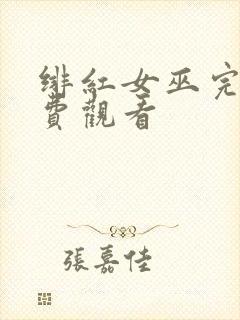 緋紅女巫完
費觀看
張嘉佳